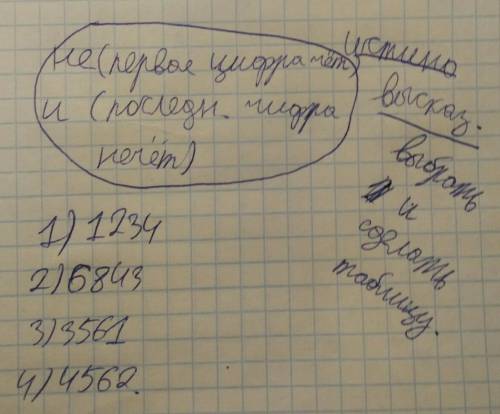 не(первая цифра чёт)
и (последн. цифра
нечёт)
истина
высказ.
выбрать
и
сделать
таблицу.
1) 1234
2) 6843
3) 3561
4) 4562.